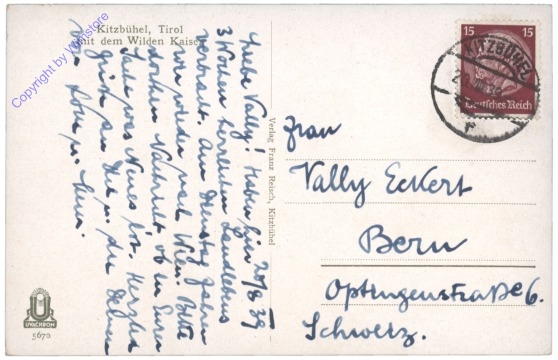 Kitzbühel, Tirol
mit dem Wilden Kaiser
Copyright by Wignstore
20/8 39
Liebe Vally! Haben hier
3 Wochen herrlichen Landlebens
verbracht. Am Dienstag fahren
wir wieder nach Wien. Bitte
dorthin Nachricht ob in Eurer
Sache was Neues ist. Herzliche
Grüße an Dich u. die Deinen
von
Verlag Franz Reisch, Kitzbühel
UVACHROM
5670
15 15
KITZBÜHEL
Deutsches Reich
Frau
Vally Eckert
Bern
Optingenstraße 6.
Schweiz.